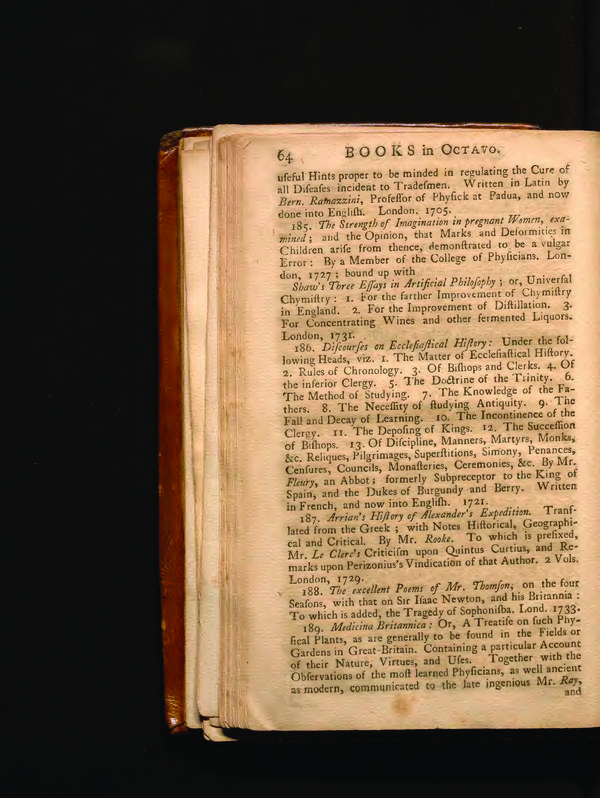 64 BOOKS in OCTAVO.
uſeful Hints proper to be minded in regulating the Cure of
all Diſeaſes incident to Tradeſmen. Written in Latin by
Bern. Ramazzini, Profeſſor of Phyſick at Padua, and now
done into Engliſh. London. 1705.
185. The Strength of Imagination in pregnant Women, exa-
mined; and the Opinion, that Marks and Deformities in
Children ariſe from thence, demonſtrated to be a vulgar
Error: By a Member of the College of Phyſicians. Lon-
don, 1727; bound up with
Shaw's Three Eſſays in Artificial Philoſophy; or, Univerſal
Chymiſtry: 1. For the farther Improvement of Chymiſtry
in England. 2. For the Improvement of Diſtillation. 3.
For Concentrating Wines and other fermented Liquors.
London, 1731.
186. Diſcourſes on Eccleſiaſtical Hiſtory: Under the fol-
lowing Heads, viz. 1. The Matter of Eccleſiaſtical Hiſtory.
2. Rules of Chronology. 3. Of Biſhops and Clerks. 4. Of
the inferior Clergy. 5. The Doctrine of the Trinity. 6.
The Method of Studying. 7. The Knowledge of the Fa-
thers. 8. The Neceſſity of ſtudying Antiquity. 9. The
Fall and Decay of Learning. 10. The Incontinence of the
Clergy. 11. The Depoſing of Kings. 12. The Succeſſion
of Biſhops. 13. Of Diſcipline, Manners, Martyrs, Monks,
&c. Reliques, Pilgrimages, Superſtitions, Simony, Penances,
Cenſures, Councils, Monaſteries, Ceremonies, &c. By Mr.
Fleury, an Abbot; formerly Subpreceptor to the King of
Spain, and the Dukes of Burgundy and Berry. Written
in French, and now into Engliſh. 1721.
187. Arrian's Hiſtory of Alexander's Expedition. Tranſ-
lated from the Greek; with Notes Hiſtorical, Geographi-
cal and Critical. By Mr. Rooke. To which is prefixed,
Mr. Le Clerc's Criticiſm upon Quintus Curtius, and Re-
marks upon Perizonius's Vindication of that Author. 2 Vols.
London, 1729.
188. The excellent Poems of Mr. Thomſon, on the four
Seaſons, with that on Sir Iſaac Newton, and his Britannia:
To which is added, the Tragedy of Sophoniſba. Lond. 1733.
189. Medicina Britannica: Or, A Treatiſe on ſuch Phy-
ſical Plants, as are generally to be found in the Fields or
Gardens in Great-Britain. Containing a particular Account
of their Nature, Virtues, and Uſes. Together with the
Obſervations of the moſt learned Phyſicians, as well ancient
as modern, communicated to the late ingenious Mr. Ray,
and